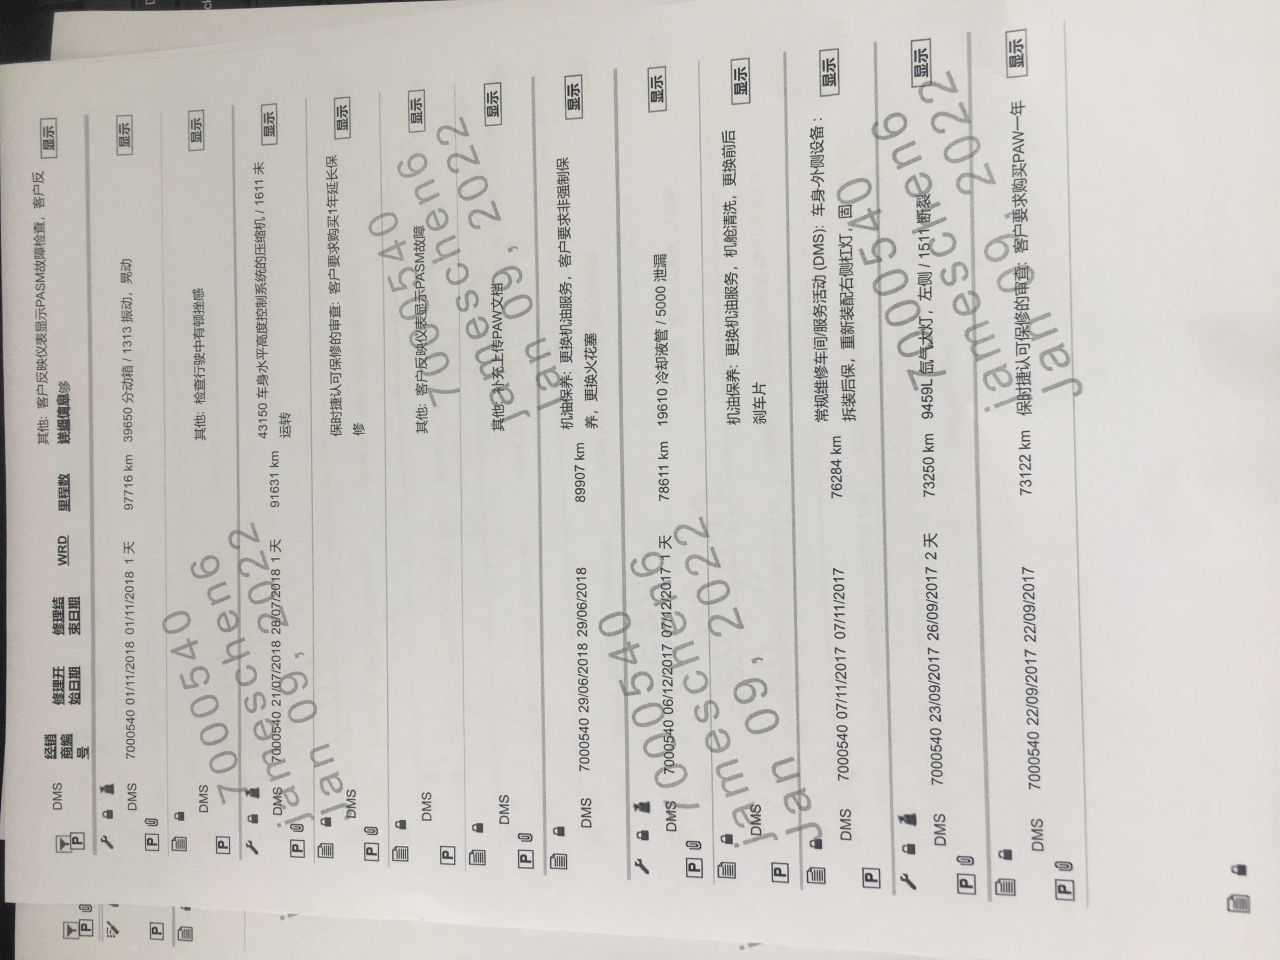 DMS
经销商编号
修理开始日期
修理结束日期
WRD
里程数
详细信息
其他: 客户反映仪表显示PASM故障检查, 客户反
够
显示
DMS
7000540 01/11/2018 01/11/2018 1 天
97716 km
39650 分动箱 / 1313 振动, 晃动
显示
DMS
其他: 检查行驶中有顿挫感
显示
DMS
7000540 21/07/2018 28/07/2018 1 天
91631 km
43150 车身水平高度控制系统的压缩机 / 1611 未
运转
显示
DMS
保时捷认可保修的审查: 客户要求购买1年延长保
修
显示
DMS
其他: 客户反映仪表显示PASM故障
显示
DMS
其他: 补充上传PAW文档
显示
DMS
7000540 29/06/2018 29/06/2018
89907 km
机油保养: 更换机油服务, 客户要求非强制保
养, 更换火花塞
显示
DMS
7000540 06/12/2017 07/12/2017 1 天
78611 km
19610 冷却液管 / 5000 泄漏
显示
DMS
机油保养: 更换机油服务, 机舱清洗, 更换前后
刹车片
显示
DMS
7000540 07/11/2017 07/11/2017
76284 km
常规维修车间/服务活动 (DMS): 车身-外侧设备:
拆装后保, 重新装配右侧杠灯, 固
显示
DMS
7000540 23/09/2017 26/09/2017 2 天
73250 km
9459L 氙气大灯, 左侧 / 1511 断裂
显示
DMS
7000540 22/09/2017 22/09/2017
73122 km
保时捷认可保修的审查: 客户要求购买PAW一年
显示
7000540
jameschen6
jan 09, 2022
7000540
jameschen6
jan 09, 2022
7000540
jameschen6
jan 09, 2022
7000540
jameschen6
jan 09, 2022